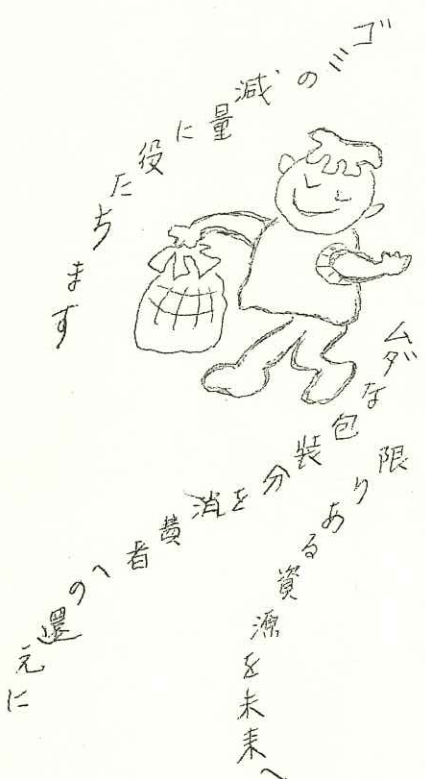 ゴミの減量に役だちます
ムダな包装分を消費者への還元に
限りある資源を未来へ